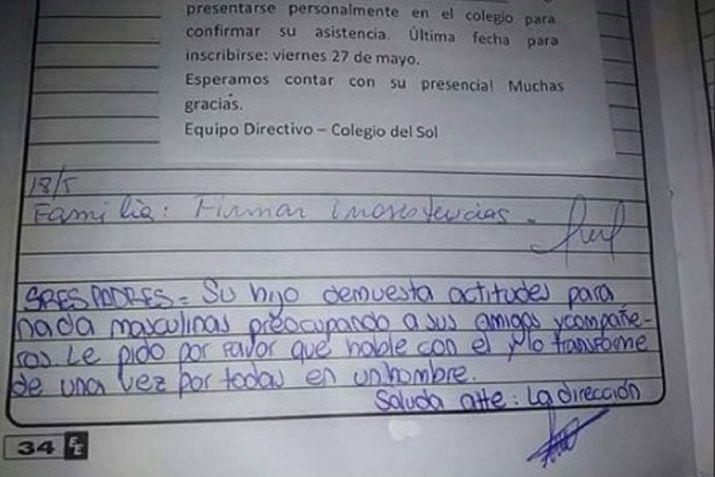 presentarse personalmente en el colegio para
confirmar su asistencia. Última fecha para
inscribirse: viernes 27 de mayo.
Esperamos contar con su presencia! Muchas
gracias.
Equipo Directivo – Colegio del Sol
18/5
Familia: Firmar inasistencias -
SRES PADRES = Su hijo demuesta actitudes para
nada masculinas preocupando a sus amigos y compañe-
ros. Le pido por favor que hable con el y lo transforme
de una vez por todas en un hombre.
Saluda atte: La dirección
34